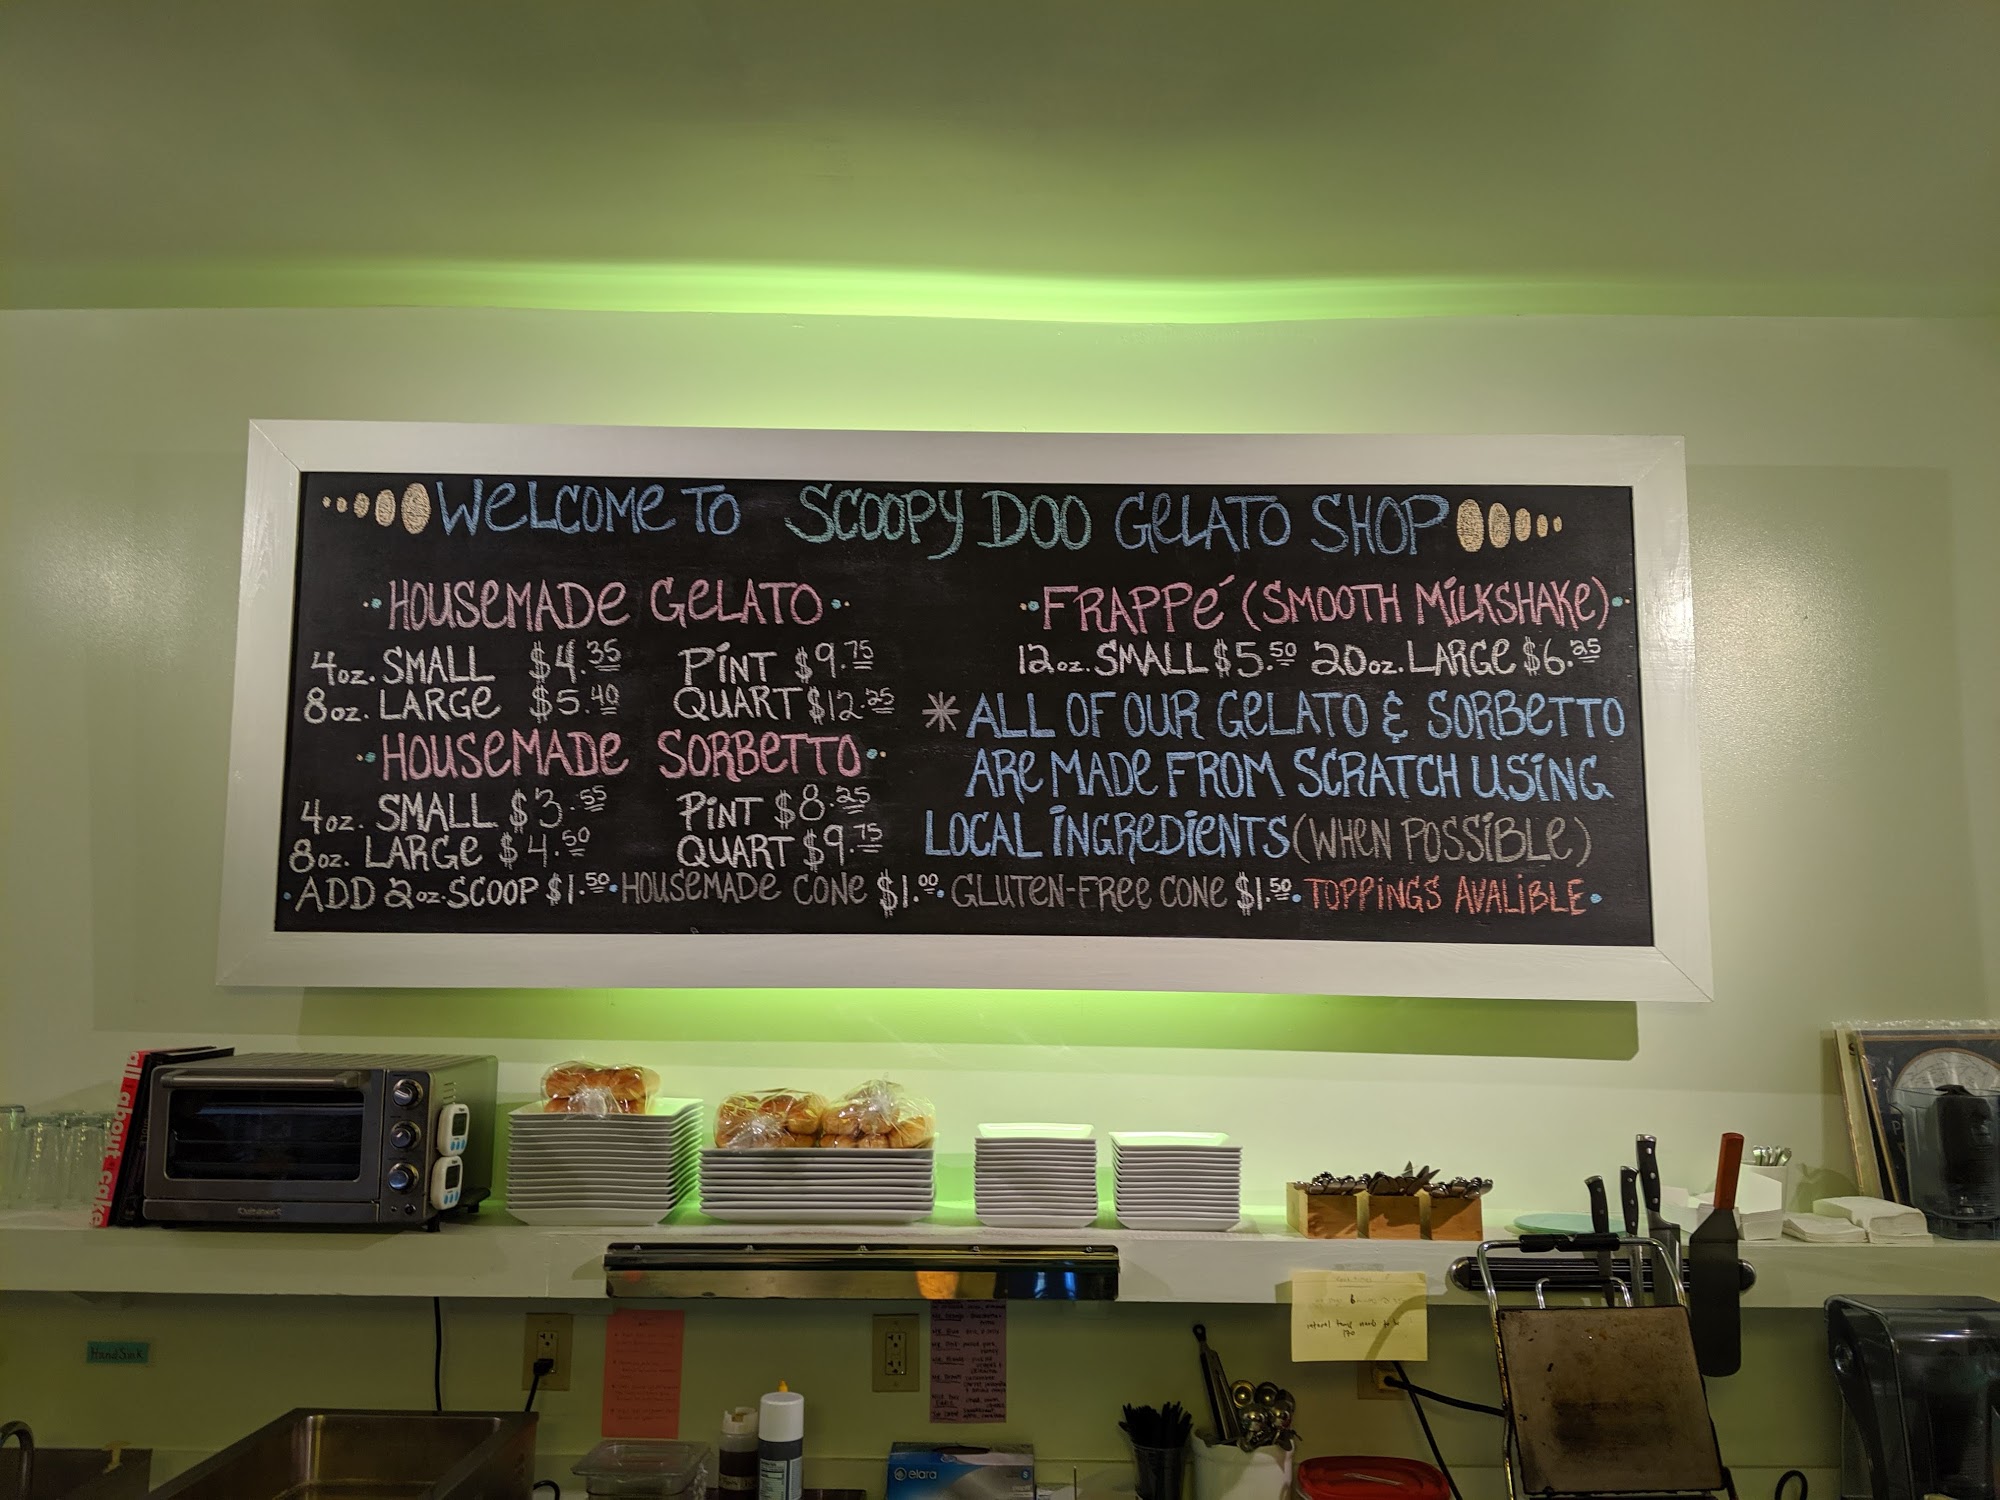 WELCOME TO SCOOPY DOO GELATO SHOP
HOUSEMADE GELATO
4oz. SMALL $4.35 PINT $9.75
8oz. LARGE $5.40 QUART $12.25
HOUSEMADE SORBETTO
4oz. SMALL $3.55 PINT $8.25
8oz. LARGE $4.50 QUART $9.75
FRAPPÉ (SMOOTH MILKSHAKE)
12oz. SMALL $5.50 20oz. LARGE $6.25
*ALL OF OUR GELATO & SORBETTO
ARE MADE FROM SCRATCH USING
LOCAL INGREDIENTS (WHEN POSSIBLE)
•ADD 2oz. SCOOP $1.50•HOUSEMADE CONE $1.00•GLUTEN-FREE CONE $1.50•TOPPINGS AVALIBLE•
all about cake
Cuisinart
Hand Sink
internal temp needs to be
170
elara